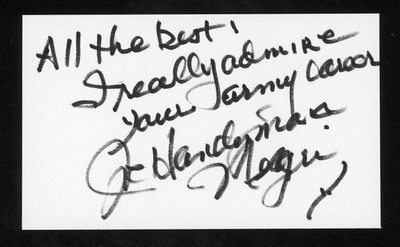 All the best!
I really admire
your army career
Joe Handyman
Negri